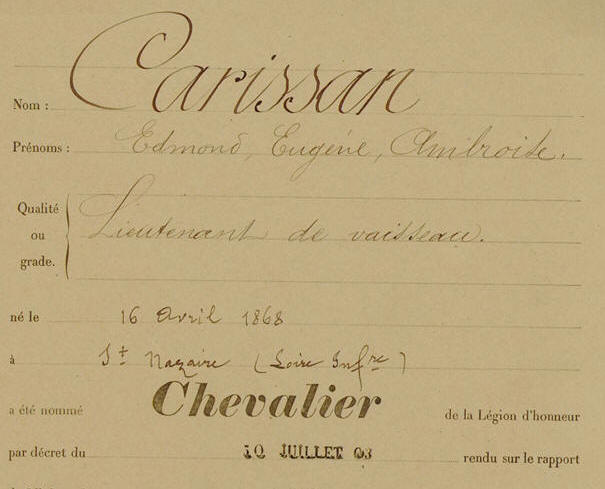 Nom : Carissan
Prénoms : Edmond, Eugéne, Ambroise.
Qualité
ou
grade.
Lieutenant de vaisseau.
né le 16 Avril 1868
à St Nazaire (Loire Infre)
a été nommé Chevalier de la Légion d'honneur
par décret du 10 JUILLET 03 rendu sur le rapport